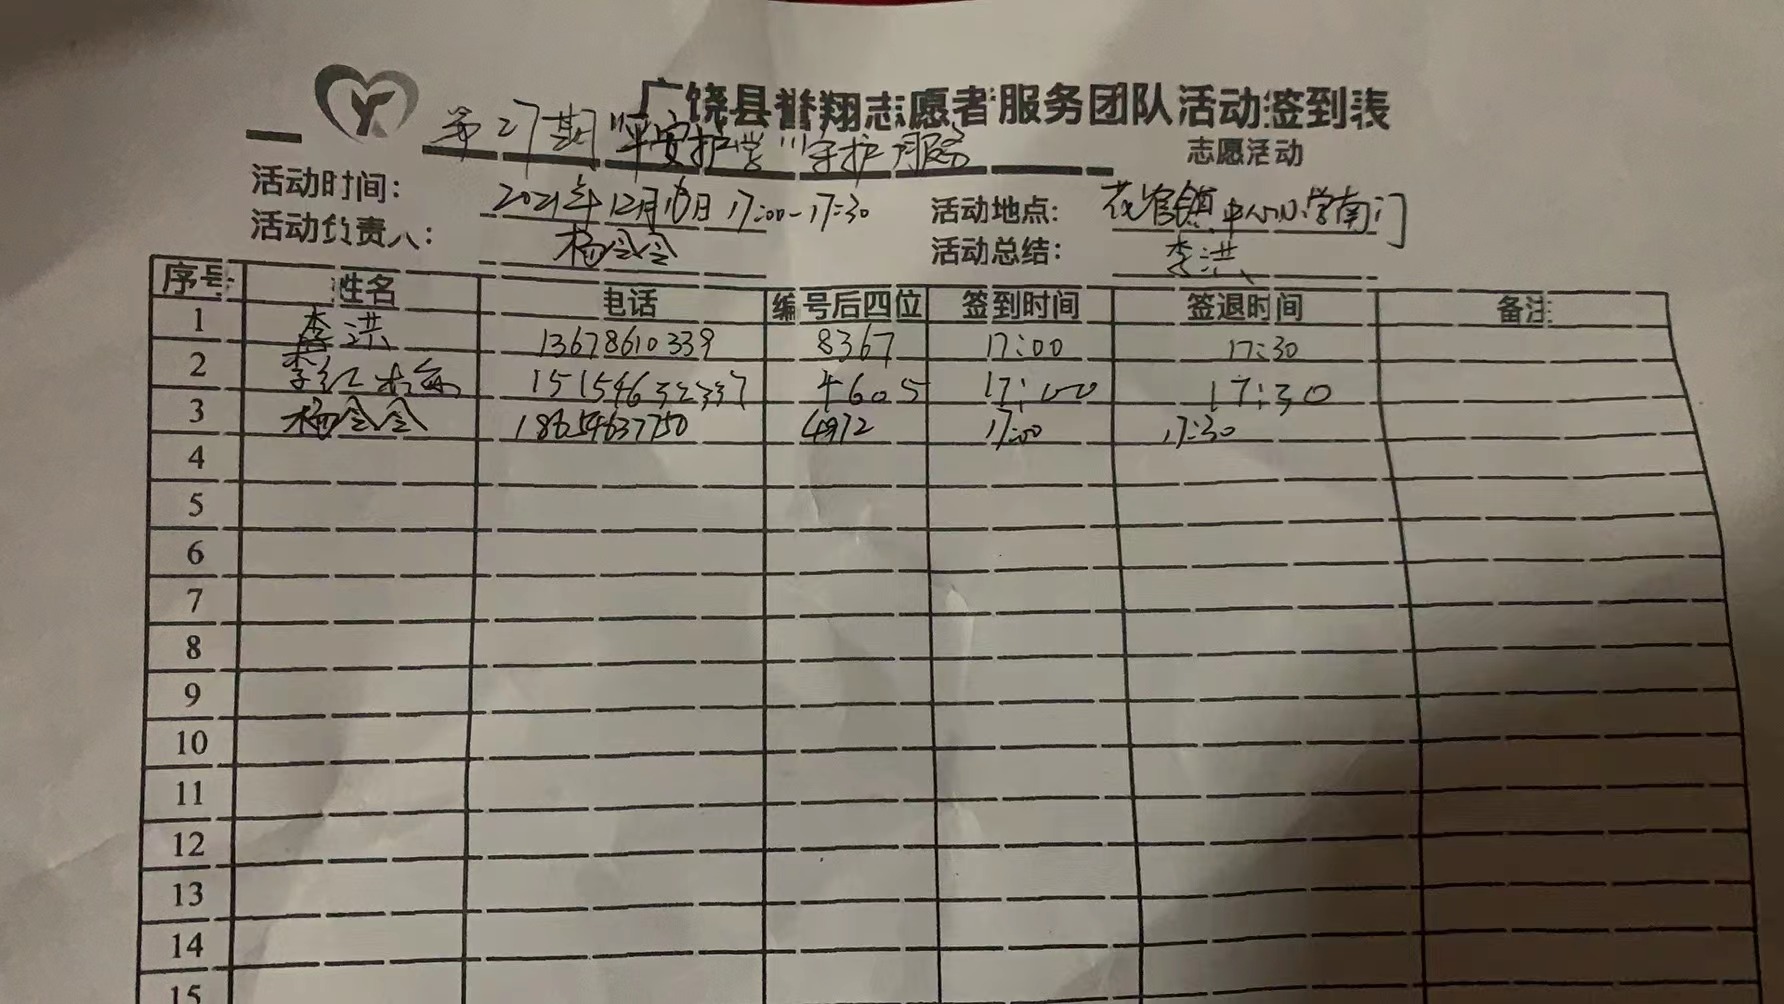 广饶县誉翔志愿者服务团队活动签到表
第27期"平安护学"守护服务 志愿活动
活动时间: 2021年12月10日 17:00-17:30 活动地点: 花官镇中心小学南门
活动负责人: 杨令令 活动总结: 李洪
序号 姓名 电话 编号后四位 签到时间 签退时间 备注
1 李洪 13678610339 8367 17:00 17:30
2 李红梅 15154632337 4605 17:00 17:30
3 杨令令 18654637750 4972 17:00 17:30
4
5
6
7
8
9
10
11
12
13
14
15